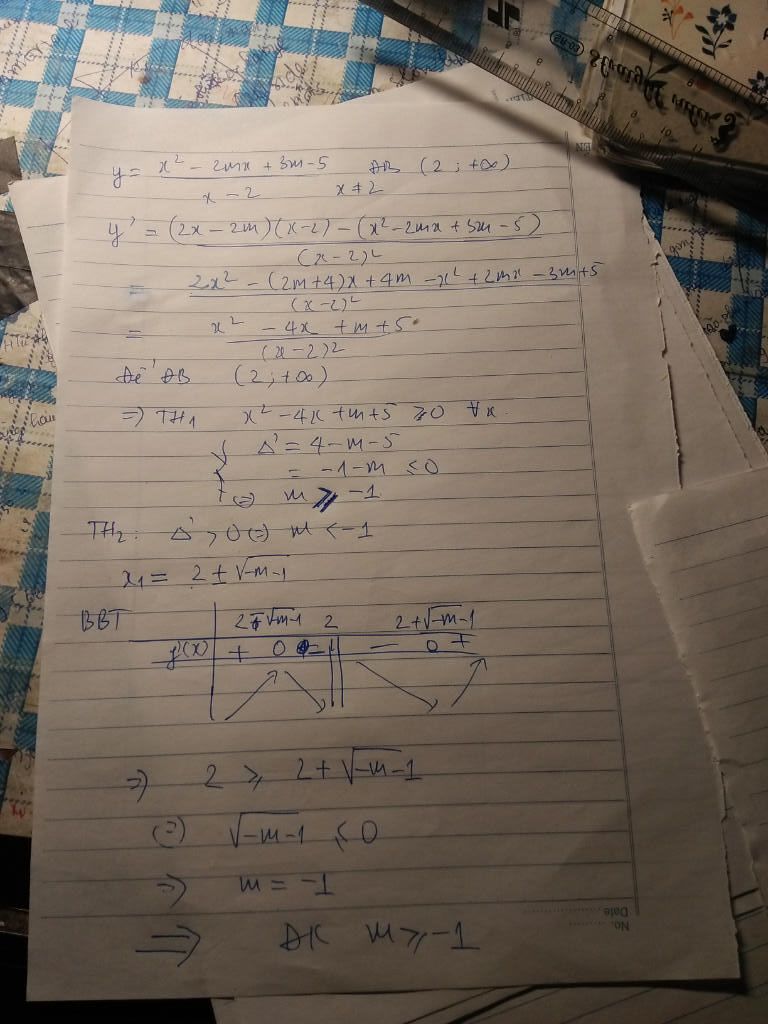 y = (x² - 2mx + 3m - 5) / (x - 2) ĐB (2 ; +∞)
x ≠ 2
y' = ((2x - 2m)(x - 2) - (x² - 2mx + 3m - 5)) / (x - 2)²
= (2x² - (2m + 4)x + 4m - x² + 2mx - 3m + 5) / (x - 2)²
= (x² - 4x + m + 5) / (x - 2)²
Để ĐB (2 ; +∞)
=> TH1 x² - 4x + m + 5 ≥ 0 ∀x
Δ' = 4 - m - 5
= -1 - m ≤ 0
<=> m ≥ -1
TH2: Δ' > 0 (=) m < -1
x₁ = 2 ± √(-m-1)
BBT 2 - √(-m-1) 2 2 + √(-m-1)
y'(x) + 0 - || - 0 +
=> 2 ≥ 2 + √(-m-1)
(=) √(-m-1) ≤ 0
=> m = -1
=> ĐK m ≥ -1
No. ............
Date ............